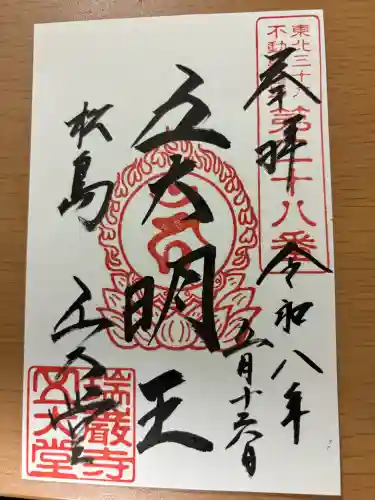 東北三十六
不動
第二十八番
奉拝
令和八年
五月十六日
五大明王
松島
五大堂
瑞巌寺
五大堂